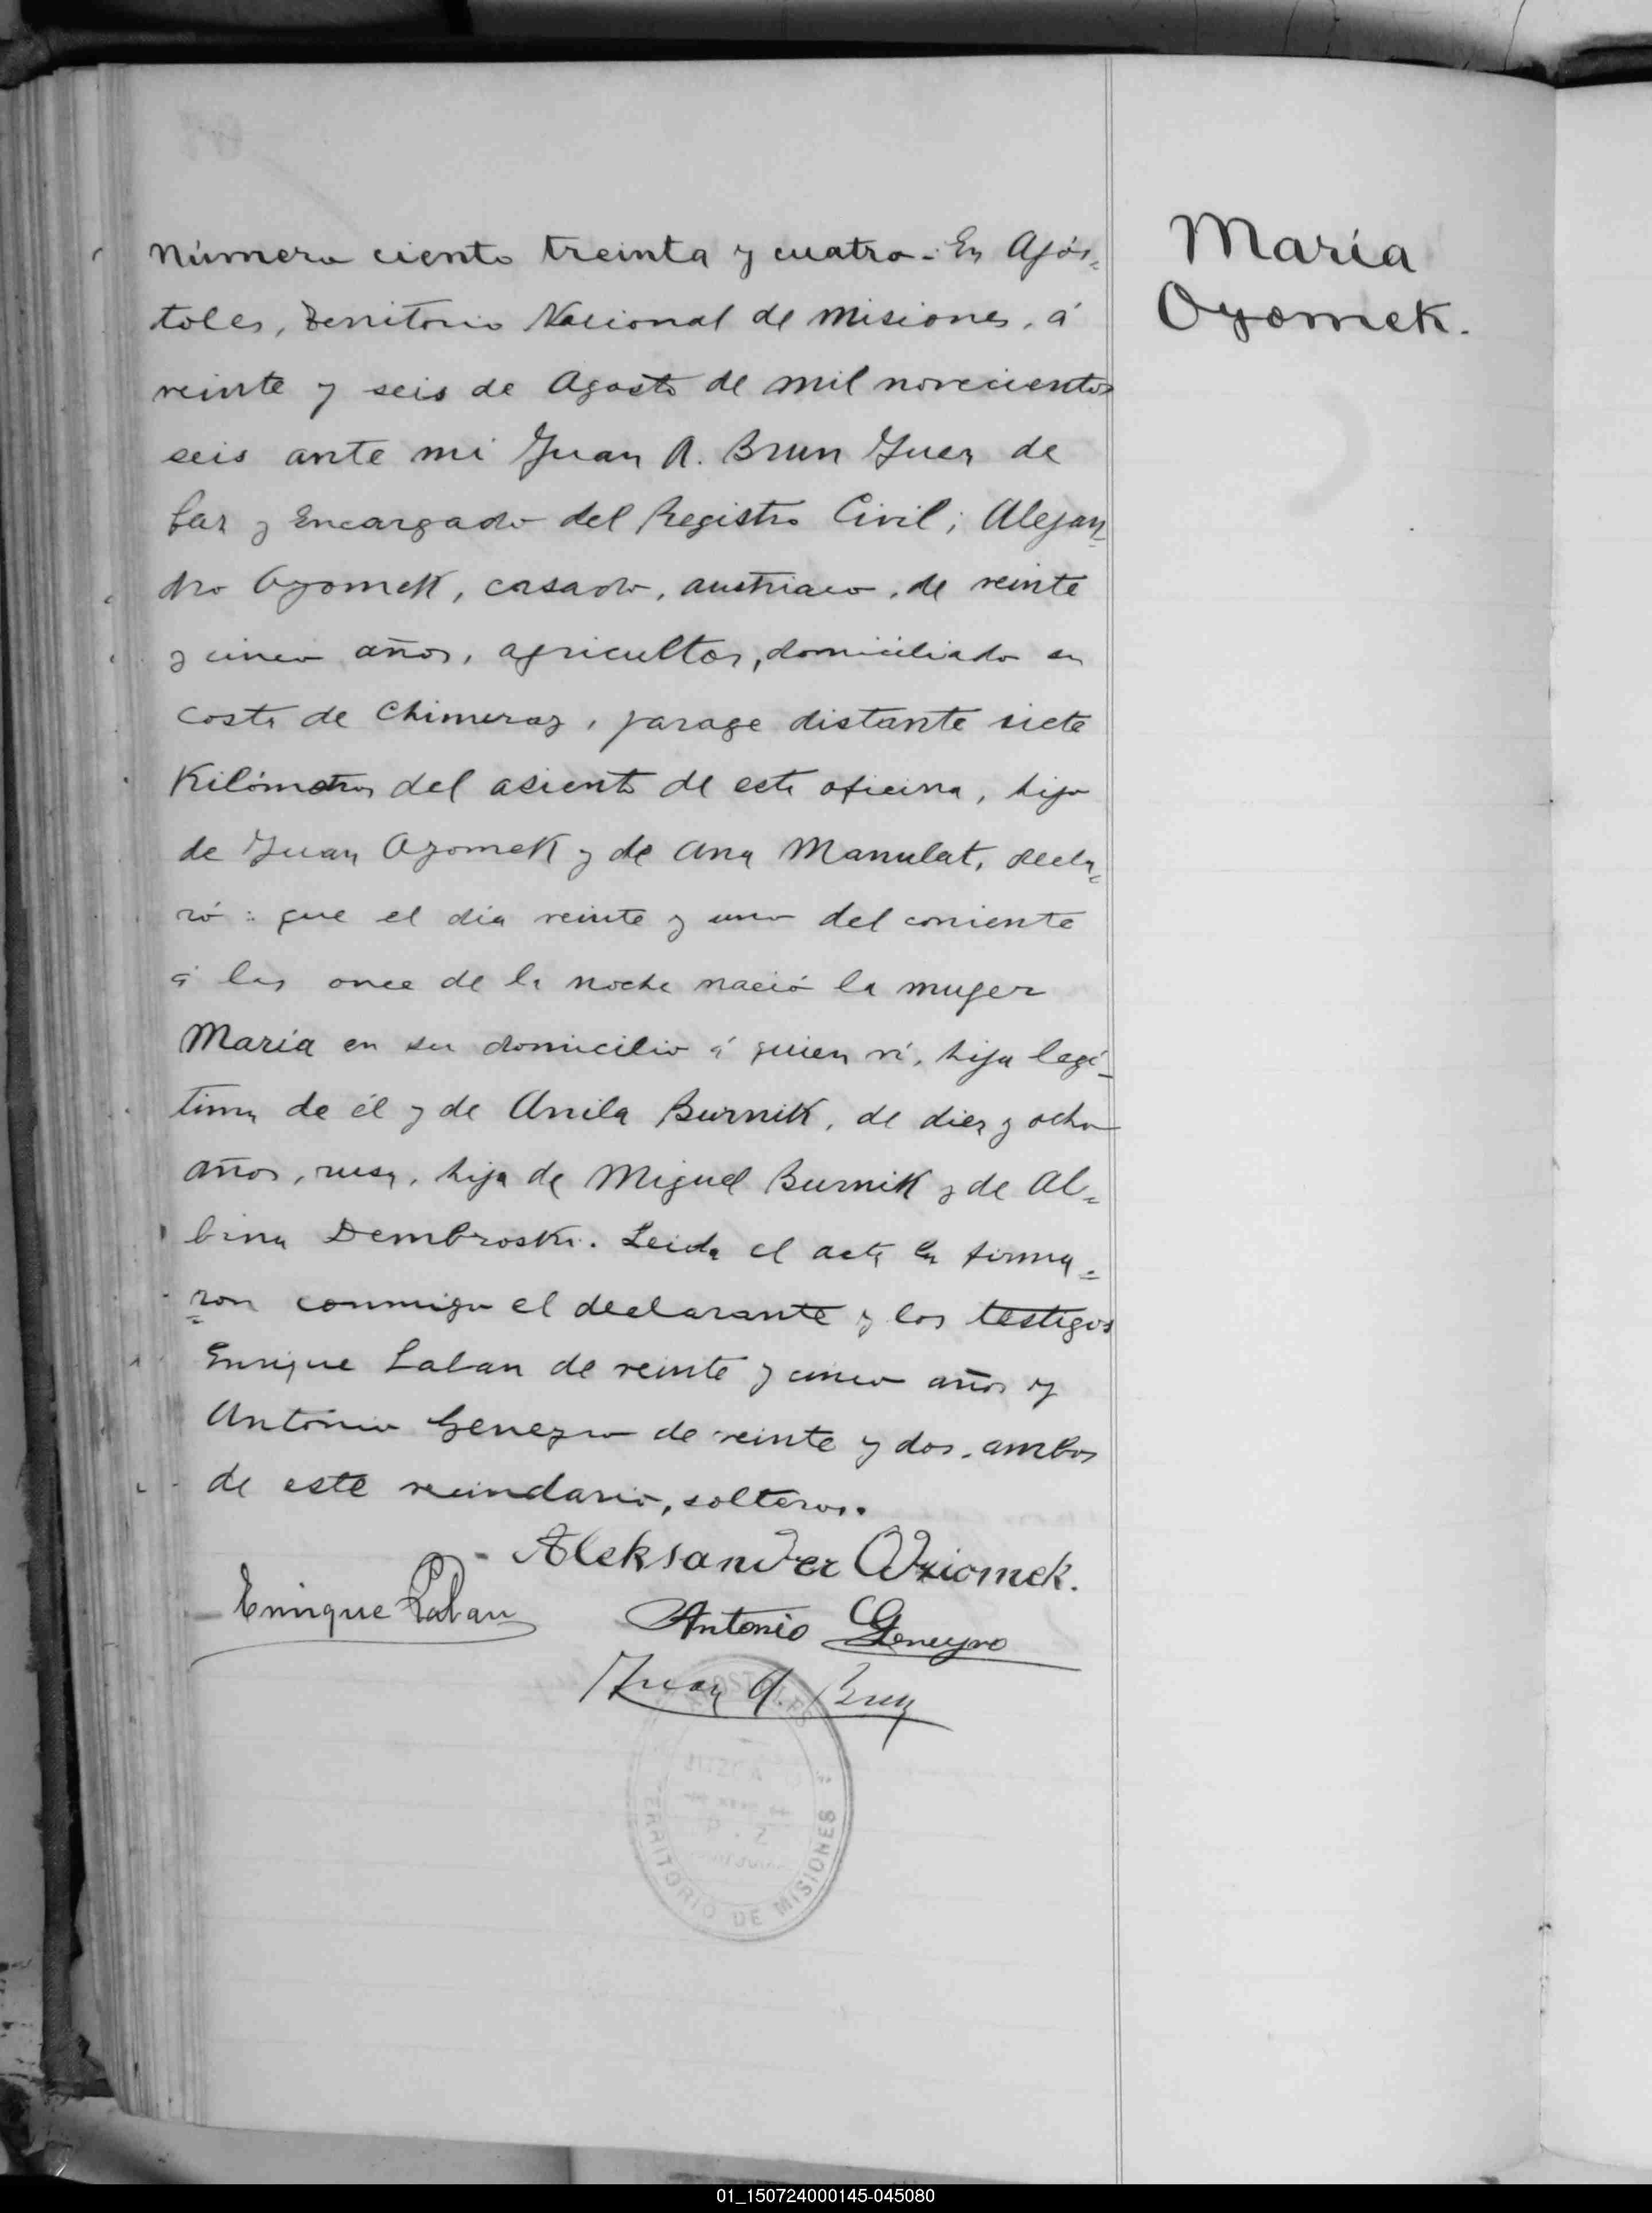 María
Oyomek.
Número ciento treinta y cuatro.- En Após=
toles, Territorio Nacional de Misiones, á
veinte y seis de Agosto de mil novecientos
seis ante mi Juan A. Brun Juez de
Paz y Encargado del Registro Civil; Alejan=
dro Oyomek, casado, austriaco, de veinte
y cinco años, agricultor, domiciliado en
costa de Chimeraz, parage distante siete
Kilómetros del asiento de esta oficina, hijo
de Juan Oyomek y de Ana Manulat, decla=
ró: que el dia veinte y uno del corriente
á las once de la noche nació la muger
María en su domicilio á quien ví, hija legí-
tima de él y de Anila Burnik, de diez y ocho
años, rusa, hija de Miguel Burnik y de Al=
bina Dembroski. Leida el acta la firma=
=ron conmigo el declarante y los testigos
Enrique Laban de veinte y cinco años y
Antonio Geneyro de veinte y dos, ambos
de este vecindario, solteros.
Aleksander Oziomek.
Enrique Laban Antonio Geneyro
Juan A. Brun
APOSTOLES
TERRITORIO DE MISIONES
01_150724000145-045080